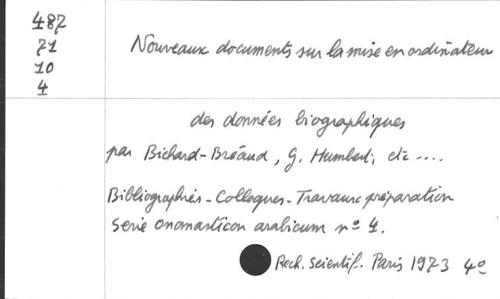 487
71
10
4
Nouveaux documents sur la mise en ordinateur
des données biographiques
par Bichard-Bréaud, G. Humbert, etc ....
Bibliographies - Colloques - Travaux préparation
Serie onomasticon arabicum nº 4.
Rech. Scientif. Paris 1973 4º